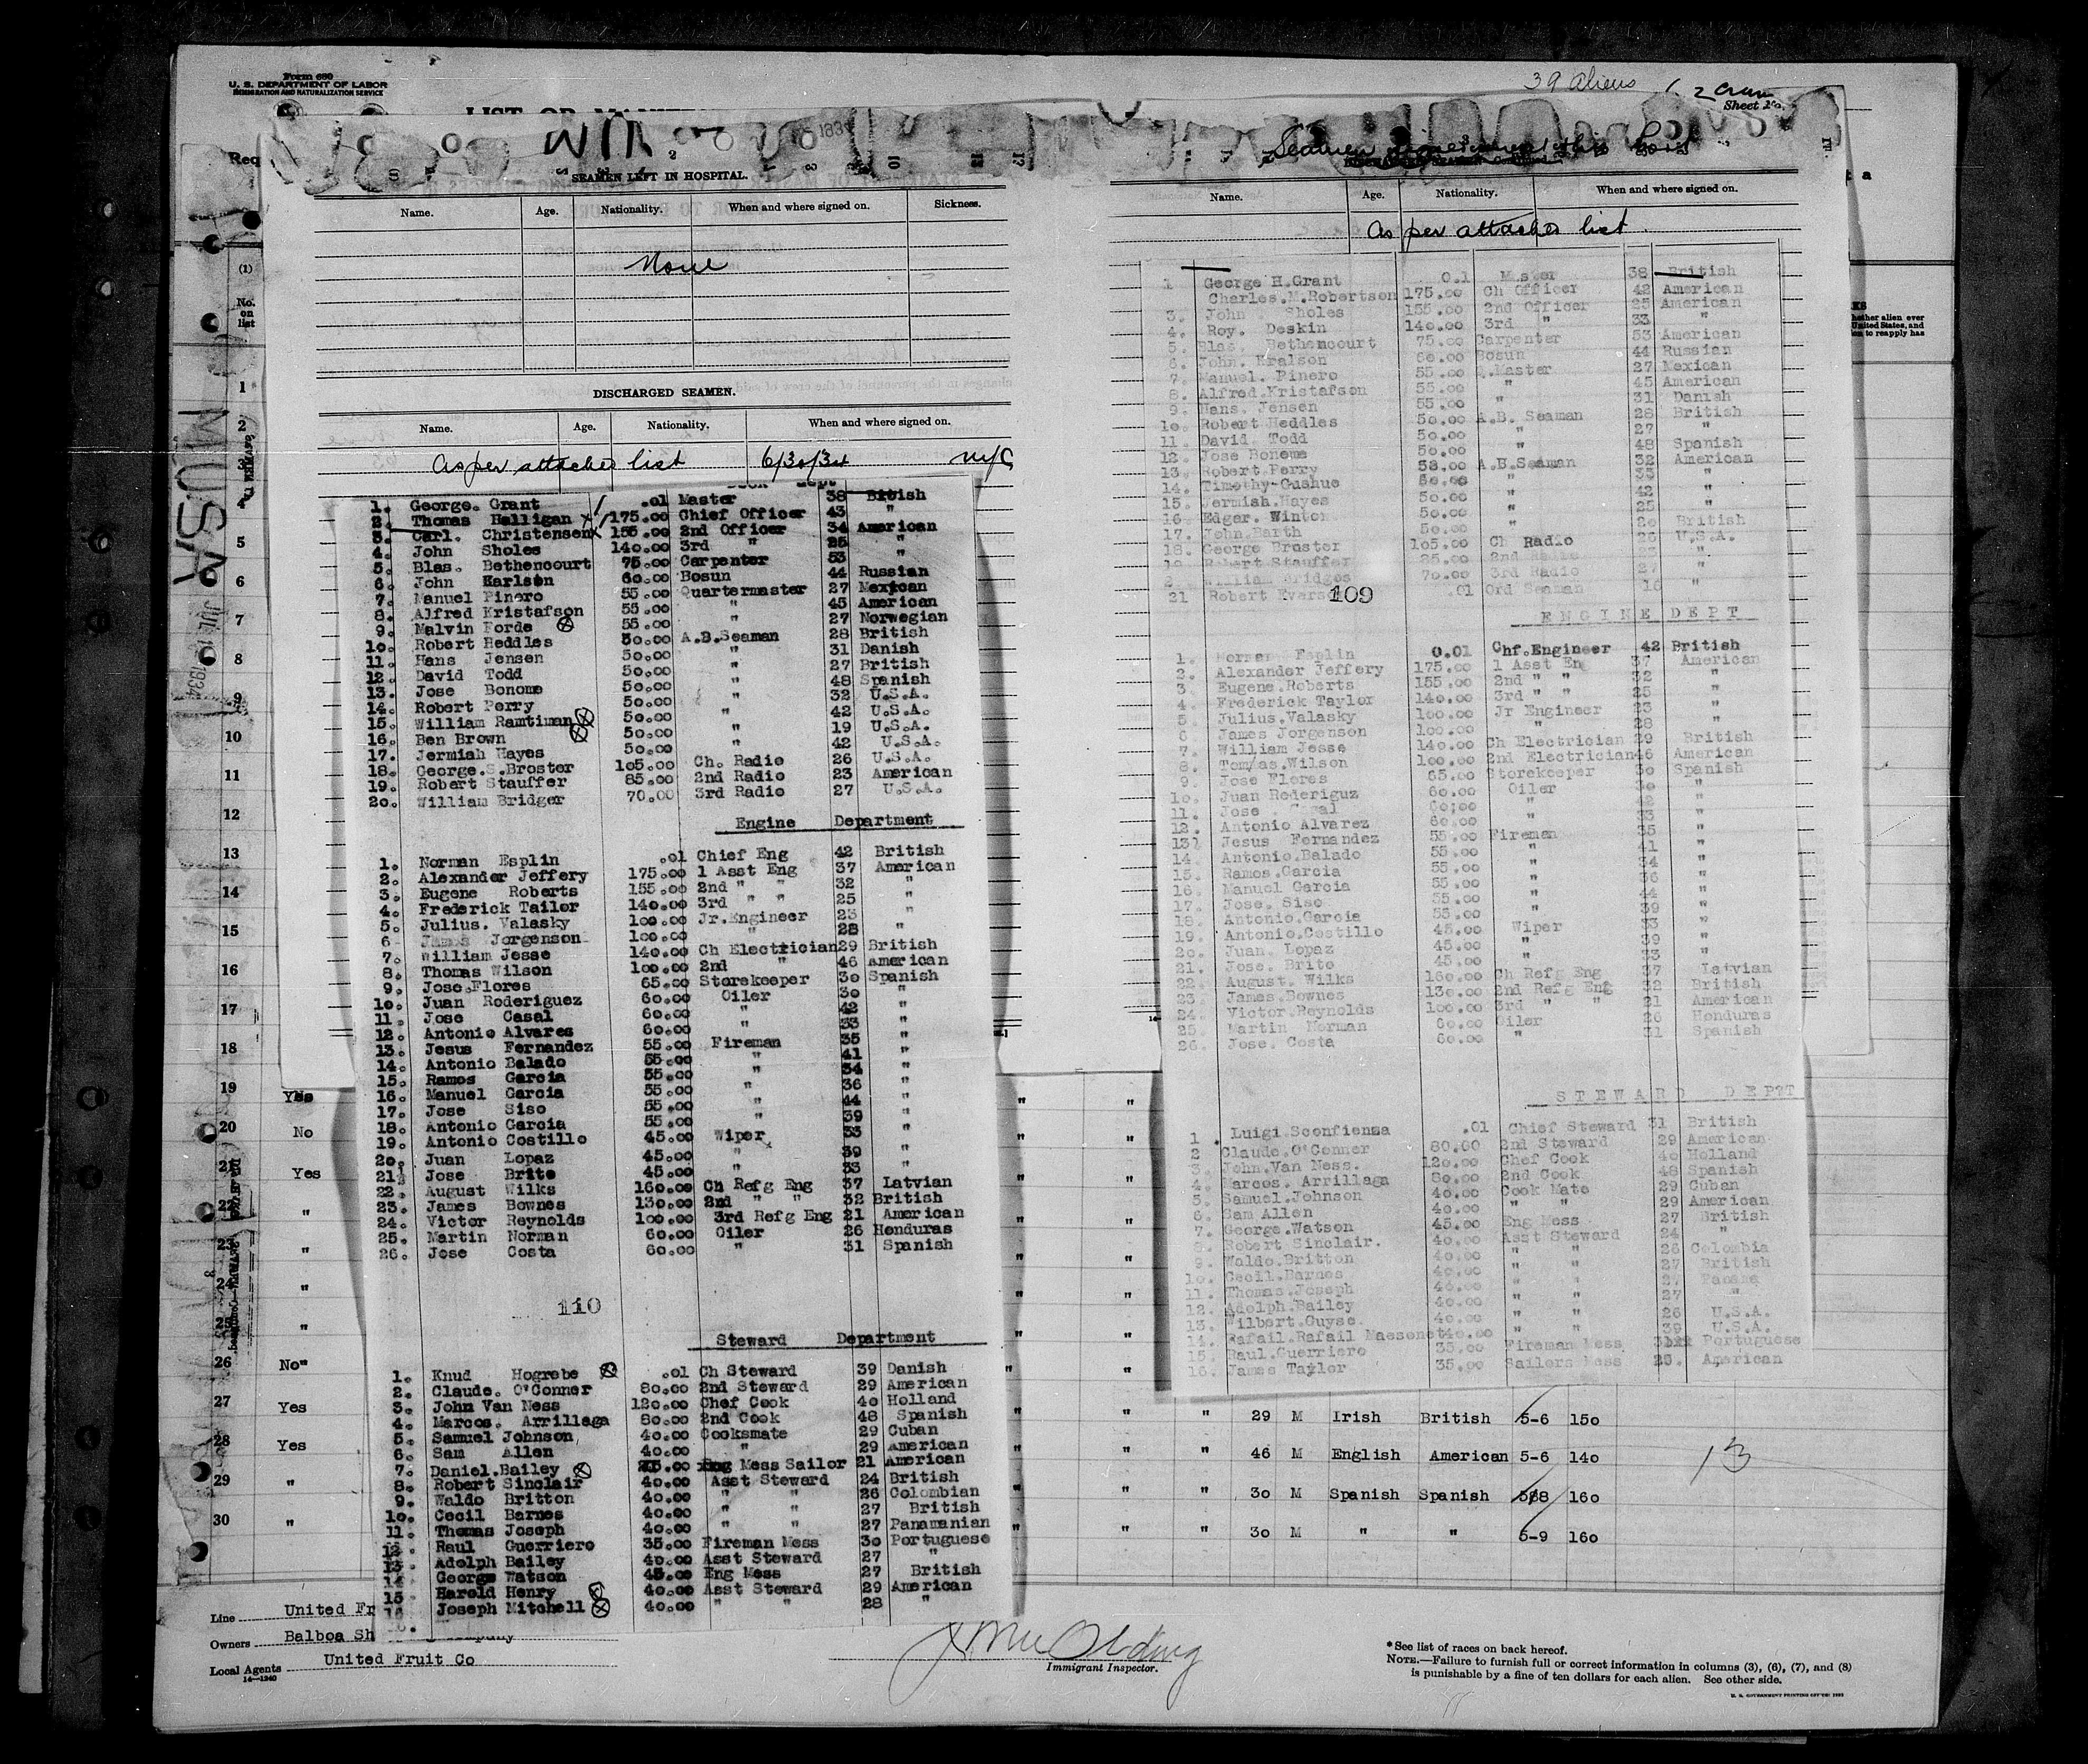 Form 680
U. S. DEPARTMENT OF LABOR
IMMIGRATION AND NATURALIZATION SERVICE
39 Aliens
Sheet No.
Req
(1)
No. on list
MUSA
SEAMEN LEFT IN HOSPITAL.
Name. Age. Nationality. When and where signed on. Sickness.
None
DISCHARGED SEAMEN.
Name. Age. Nationality. When and where signed on.
As per attached list 6/30/34 NYC
1. George. Grant .01 Master 38 British
2. Thomas Halligan 175.00 Chief Officer 43 "
3. Carl. Christensen 155.00 2nd Officer 34 American
4. John Sholes 140.00 3rd " 25 "
5. Blas. Bethencourt 75.00 Carpenter 53 "
6. John Karlson 60.00 Bosun 44 Russian
7. Manuel Pinero 55.00 Quartermaster 27 Mexican
8. Alfred Kristafson 55.00 " 45 American
9. Malvin Forde 55.00 " 27 Norwegian
10. Robert Heddles 50.00 A.B.Seaman 28 British
11. Hans Jensen 50.00 " 31 Danish
12. David Todd 50.00 " 27 British
13. Jose Bonome 50.00 " 48 Spanish
14. Robert Perry 50.00 " 32 U.S.A.
15. William Ramtiman 50.00 " 42 U.S.A.
16. Ben Brown 50.00 " 19 U.S.A.
17. Jermiah Hayes 50.00 " 42 U.S.A.
18. George.S.Broster 105.00 Ch. Radio 26 U.S.A.
19. Robert Stauffer 85.00 2nd Radio 23 American
20. William Bridger 70.00 3rd Radio 27 U.S.A.
Engine Department
1. Norman Esplin .01 Chief Eng 42 British
2. Alexander Jeffery 175.00 1 Asst Eng 37 American
3. Eugene Roberts 155.00 2nd " " 32 "
4. Frederick Tailor 140.00 3rd " " 25 "
5. Julius. Valasky 100.00 Jr.Engineer 23 "
6 James Jorgenson 100.00 " 28 "
7. William Jesse 140.00 Ch Electrician 29 British
8. Thomas Wilson 100.00 2nd " 46 American
9. Jose.Flores 65.00 Storekeeper 30 Spanish
10. Juan Roderiguez 60.00 Oiler 30 "
11. Jose Casal 60.00 " 42 "
12. Antonio Alvares 60.00 " 33 "
13. Jesus Fernandez 55.00 Fireman 35 "
14. Antonio Balado 55.00 " 41 "
15. Ramos Garcia 55.00 " 34 "
16. Manuel Garcia 55.00 " 36 "
17. Jose Siso 55.00 " 44 "
18. Antonio Garcia 55.00 " 39 "
19. Antonio Costillo 45.00 Wiper 33 "
20. Juan Lopaz 45.00 " 39 "
21. Jose Brite 45.00 " 33 "
22. August Wilks 160.00 Ch Refg Eng 37 Latvian
23. James Bownes 130.00 2nd " " 32 British
24. Victor Reynolds 100.00 3rd Refg Eng 21 American
25. Martin Norman 60.00 Oiler 26 Honduras
26. Jose Costa 60.00 " 31 Spanish
110
Steward Department
1. Knud Hogrebe .01 Ch Steward 39 Danish
2. Claude. O'Conner 80.00 2nd Steward 29 American
3. John Van Ness 120.00 Chef Cook 40 Holland
4. Marcos. Arrillaga 80.00 2nd Cook 48 Spanish
5. Samuel Johnson 40.00 Cooksmate 29 Cuban
6. Sam Allen 40.00 " 29 American
7. Daniel.Bailey Mess Sailor 21 American
8. Robert Sinclair 40.00 Asst Steward 24 British
9. Waldo Britton 40.00 " " 26 Colombian
10. Cecil Barnes 40.00 " " 27 British
11. Thomas Joseph 40.00 " " 27 Panamanian
12. Raul Guerriero 35.00 Fireman Mess 30 Portuguese
13. Adolph Bailey 40.00 Asst Steward 27 "
14 George Watson 45.00 Eng Mess 27 British
15 Harold Henry 40.00 Asst Steward 29 American
Joseph Mitchell 40.00 " " 28 "
Name. Age. Nationality. When and where signed on.
As per attached list.
1 George H.Grant 0.1 Master 38 British
Charles.M.Robertson 175.00 Ch Officer 42 American
3. John Sholes 155.00 2nd Officer 25 American
4. Roy. Deskin 140.00 3rd " 33 "
5. Blas. Bethencourt 75.00 Carpenter 53 American
6. John. Kralson 60.00 Bosun 44 Russian
7. Manuel. Pinero 55.00 Q.Master 27 Mexican
8. Alfred.Kristafson 55.00 " 45 American
9. Hans. Jensen 55.00 " 31 Danish
10. Robert Heddles 50.00 A.B. Seaman 28 British
11. David Todd 50.00 " 27 "
12. Jose Bonome 50.00 " 48 Spanish
13. Robert Perry A.B.Seaman 32 American
14. Timothy Cushue 50.00 " 35 "
15. Jermiah.Hayes 50.00 " 42 "
16. Edgar. Winton 50.00 " 25 "
17. John.Barth 50.00 " British
18. George Broster 105.00 Ch Radio 26 U.S.A.
Robert Stauffer 85.00 2nd 23 "
William Bridges 70.00 3rd Radio 27 "
21 Robert .01 Ord Seaman 18 "
109
ENGINE DEPT
1. Norman Esplin 0.01 Chf.Engineer 42 British
2. Alexander Jeffery 175.00 1 Asst En 37 American
3. Eugene.Roberts 155.00 2nd " " 32 "
4. Frederick Taylor 140.00 3rd " " 25 "
5. Julius.Valasky 100.00 Jr Engineer 23 "
6 James Jorgenson 100.00 " 28 "
7. William Jesse 140.00 Ch Electrician 29 British
8. Tom/as.Wilson 100.00 2nd Electrician 46 American
9. Jose Flores 65.00 Storekeeper 30 Spanish
10. Juan Roderiguz 60.00 Oiler 30 "
11. Jose Casal 60:00 " 42 "
12. Antonio Alvarez 60.00 " 33 "
13. Jesus Fernandez 55.00 Fireman 35 "
14. Antonio.Balado 55.00 " 41 "
15. Ramos.Garcia 55.00 " 34 "
16. Manuel Garcia 55.00 " 36 "
17. Jose. Siso 55.00 " 44 "
18. Antonio.Garcia 55.00 " 39 "
19. Antonio.Costillo 45.00 Wiper 33 "
20. Juan. Lopaz 45.00 " 39 "
21. Jose. Brite 45.00 " 33 "
22. August. Wilks 160.00 Ch Refg Eng 37 Latvian
23. James.Bownes 130.00 2nd Refg Eng 32 British
24. Victor.Reynolds 100.00 3rd " " 21 American
25. Martin Norman 60.00 Oiler 26 Honduras
26. Jose. Costa 60.00 " 31 Spanish
STEWARD DEPT
1. Luigi.Sconfienza .01 Chief Steward 31 British
2 Claude.O'Conner 80.00 2nd Steward 29 American
3. John.Van Ness. 120.00 Chef Cook 40 Holland
4. Marcos. Arrillaga 80.00 2nd Cook 48 Spanish
5. Samuel.Johnson 40.00 Cook Mate 29 Cuban
6. Sam Allen 40.00 " " 29 American
7. George.Watson 45.00 Eng Mess 27 British
8. Robert Sinclair. 40.00 Asst Steward 24 "
9. Waldo.Britton 40.00 " " 26 Colombia
10. Cecil.Barnes 40.00 " " 27 British
11. Thomas.Joseph 40.00 " " 27 Panama
12. Adolph.Bailey 40.00 " " 27 "
13. Wilbert.Guyse. 40.00 " " 26 U.S.A.
14. Rafail.Rafail Maesonet 40.00 " " 39 U.S.A.
15. Raul.Guerriero 35.00 Fireman Mess Portuguese
16. James Taylor 35.00 Sailors Mess 25. American
1
2
3
4
5
6
7
8
9
10
11
12
13
14
15
16
17
18
19 Yes
20 No
21 Yes
22 "
23 "
24 "
25 "
26 No"
27 Yes
28 Yes " " 29 M Irish British 5-6 150
29 " " " 46 M English American 5-6 140
" " 30 M Spanish Spanish 160
30 " " " 30 M " " 5-9 160
13
Line United Fr
Owners Balboa Sh
Local Agents United Fruit Co
14—1240
Immigrant Inspector.
* See list of races on back hereof.
NOTE.—Failure to furnish full or correct information in columns (3), (6), (7), and (8)
is punishable by a fine of ten dollars for each alien. See other side.
U. S. GOVERNMENT PRINTING OFFICE